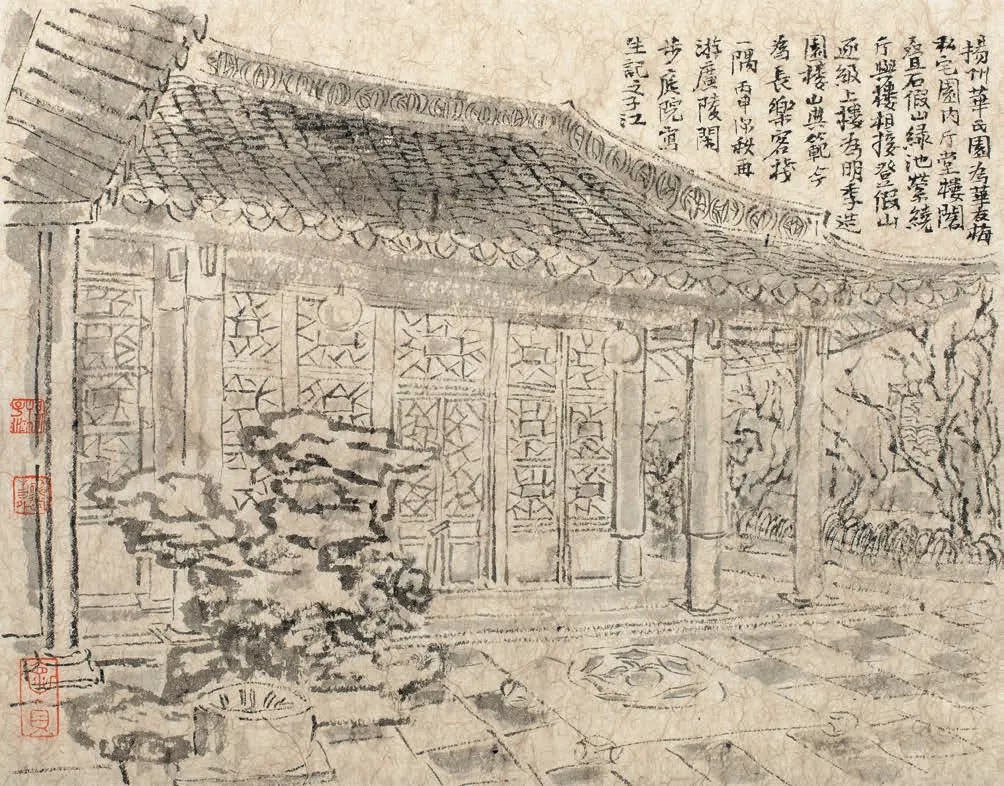 揚州華氏園為華友梅
私宅園内厅堂樓閣
叠石假山緑池縈繞
厅與樓相接登假山
逐級上樓為明季造
園樓山典範今
為長樂客栈
一隅丙申深秋再
游廣陵閑
步庭院寫
生記之子江